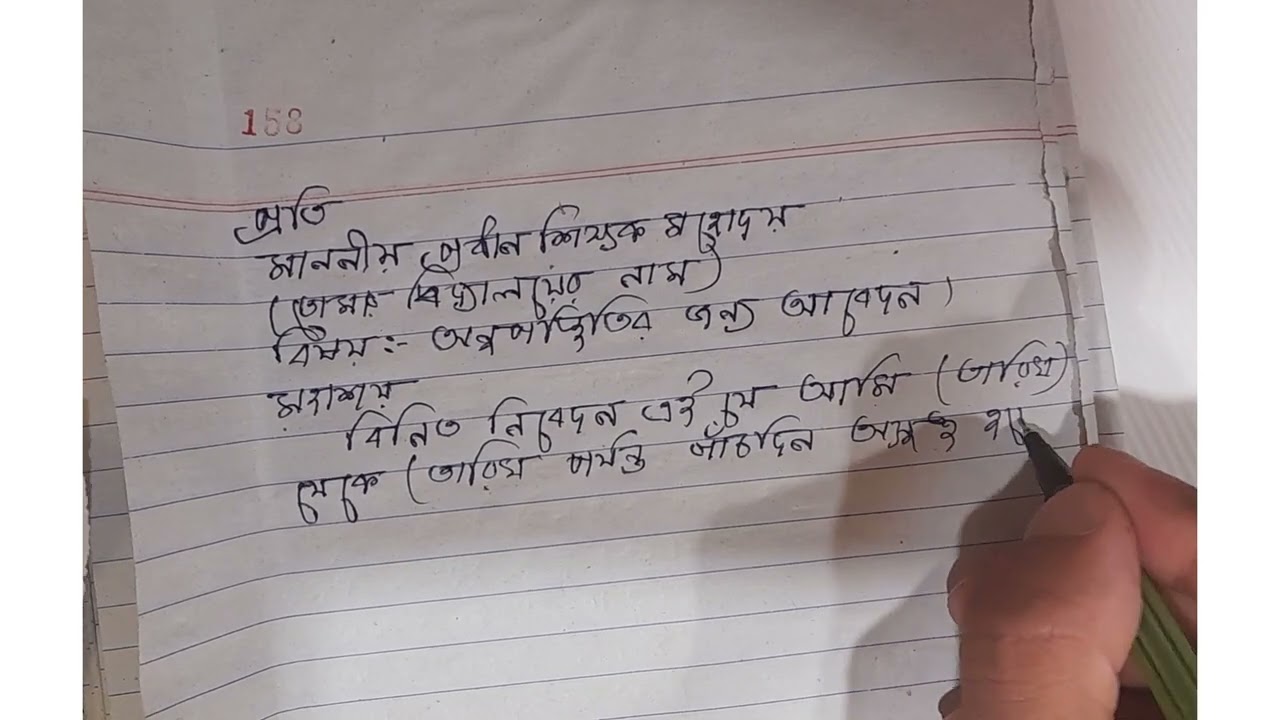 158
প্রতি
মাননীয় প্রধান শিক্ষক মহোদয়
(তোমার বিদ্যালয়ের নাম)
বিষয়:- অনুপস্থিতির জন্য আবেদন।
মহাশয়
বিনিত নিবেদন এই যে আমি (তারিখ)
থেকে (তারিখ পর্যন্ত পাঁচদিন অসুস্থ